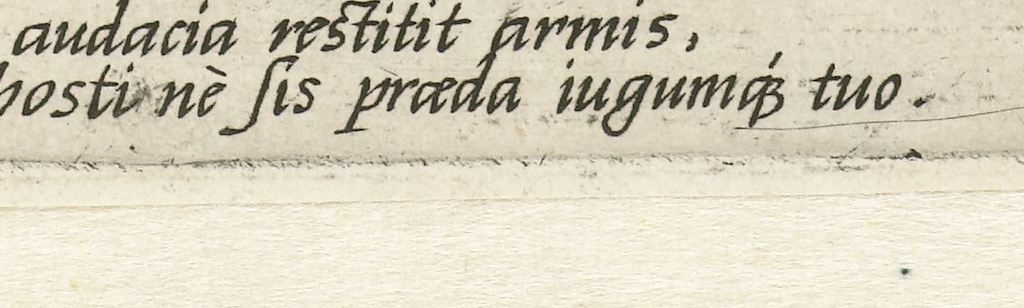 audacia restitit armis,
hosti nè ſis præda iugumq́ꝫ tuo.